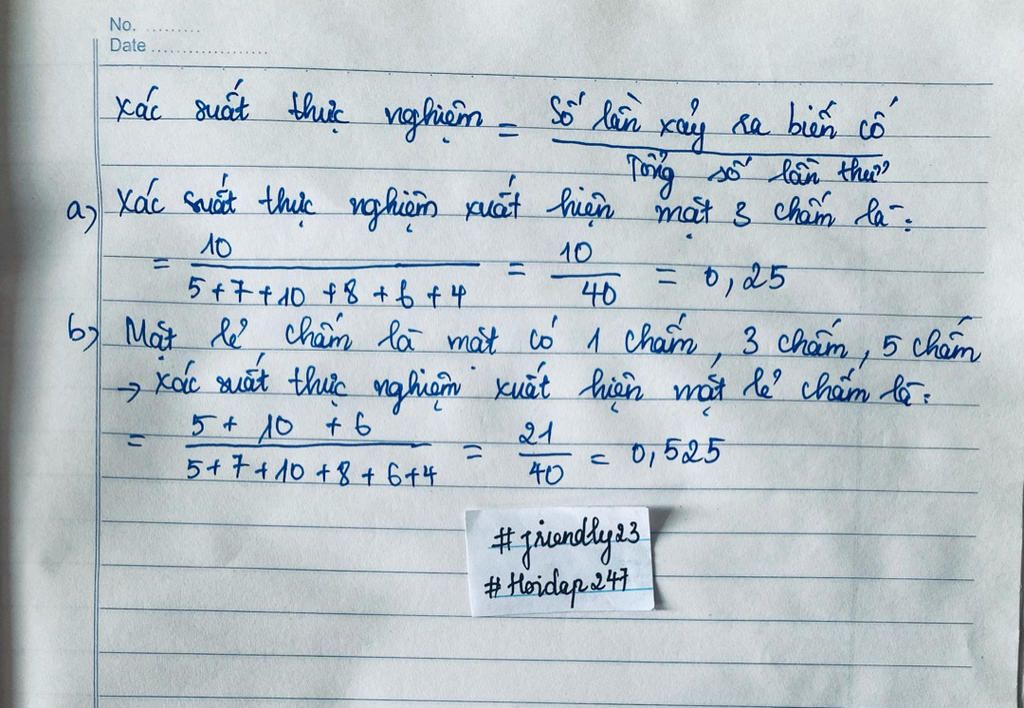 No. .........
Date ...................
Xác suất thực nghiệm = Số lần xảy ra biến cố / Tổng số lần thử
a) Xác suất thực nghiệm xuất hiện mặt 3 chấm là:
= 10 / 5+7+10+8+6+4 = 10 / 40 = 0,25
b) Mặt lẻ chấm là mặt có 1 chấm, 3 chấm, 5 chấm
→ Xác suất thực nghiệm xuất hiện mặt lẻ chấm là:
= 5 + 10 + 6 / 5+7+10+8+6+4 = 21 / 40 = 0,525
#friendly23
#Hoidap247